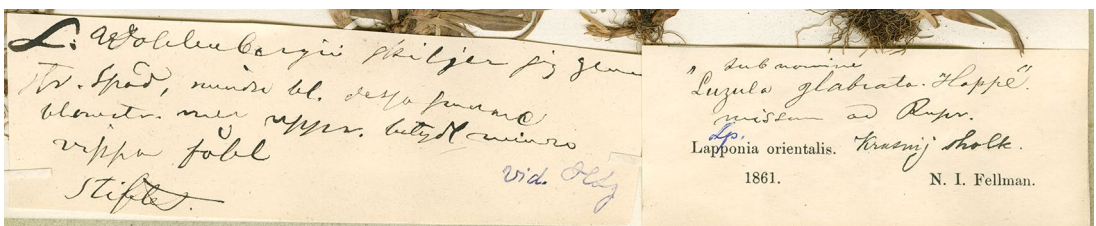 L. Wahlenbergii skiljer sig genom
str. Spåd, mindre bl. dessa
blomstr. mer uppr. betydl mindre
vippa
Stiftet.
vid.
"sub nomine
Luzula glabrata Hoppe".
missum ad Rupr.
Lp.
Lapponia orientalis. Krasnij sholk.
1861. N. I. Fellman.